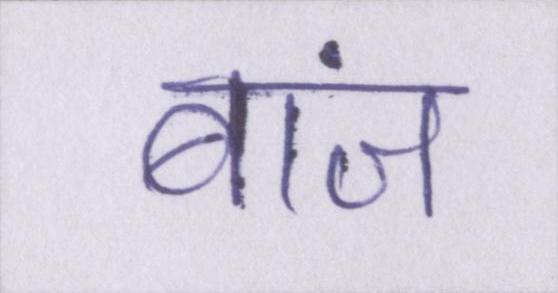 बांज